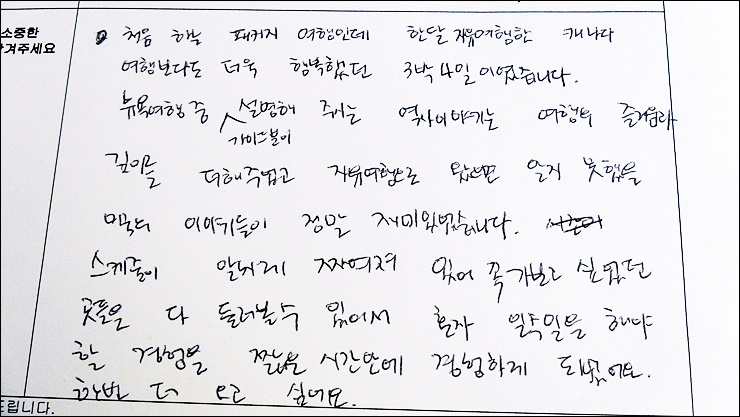 소중한
겨주세요
처음 하는 패키지 여행인데 한달 자유여행한 캐나다
여행보다도 더욱 행복했던 3박 4일이였습니다.
뉴욕여행 중 가이드분이 설명해 주시는 역사이야기는 여행의 즐거움과
깊이를 더해주었고 자유여행으로 왔으면 알지 못했을
미국의 이야기들이 정말 재미있었습니다.
스케줄이 알차게 짜여져 있어 꼭 가보고 싶었던
곳들을 다 둘러볼수 있어서 혼자 일주일을 해야
할 경험을 짧은 시간안에 경험하게 되었어요.
한번 더 오고 싶어요.
드립니다.